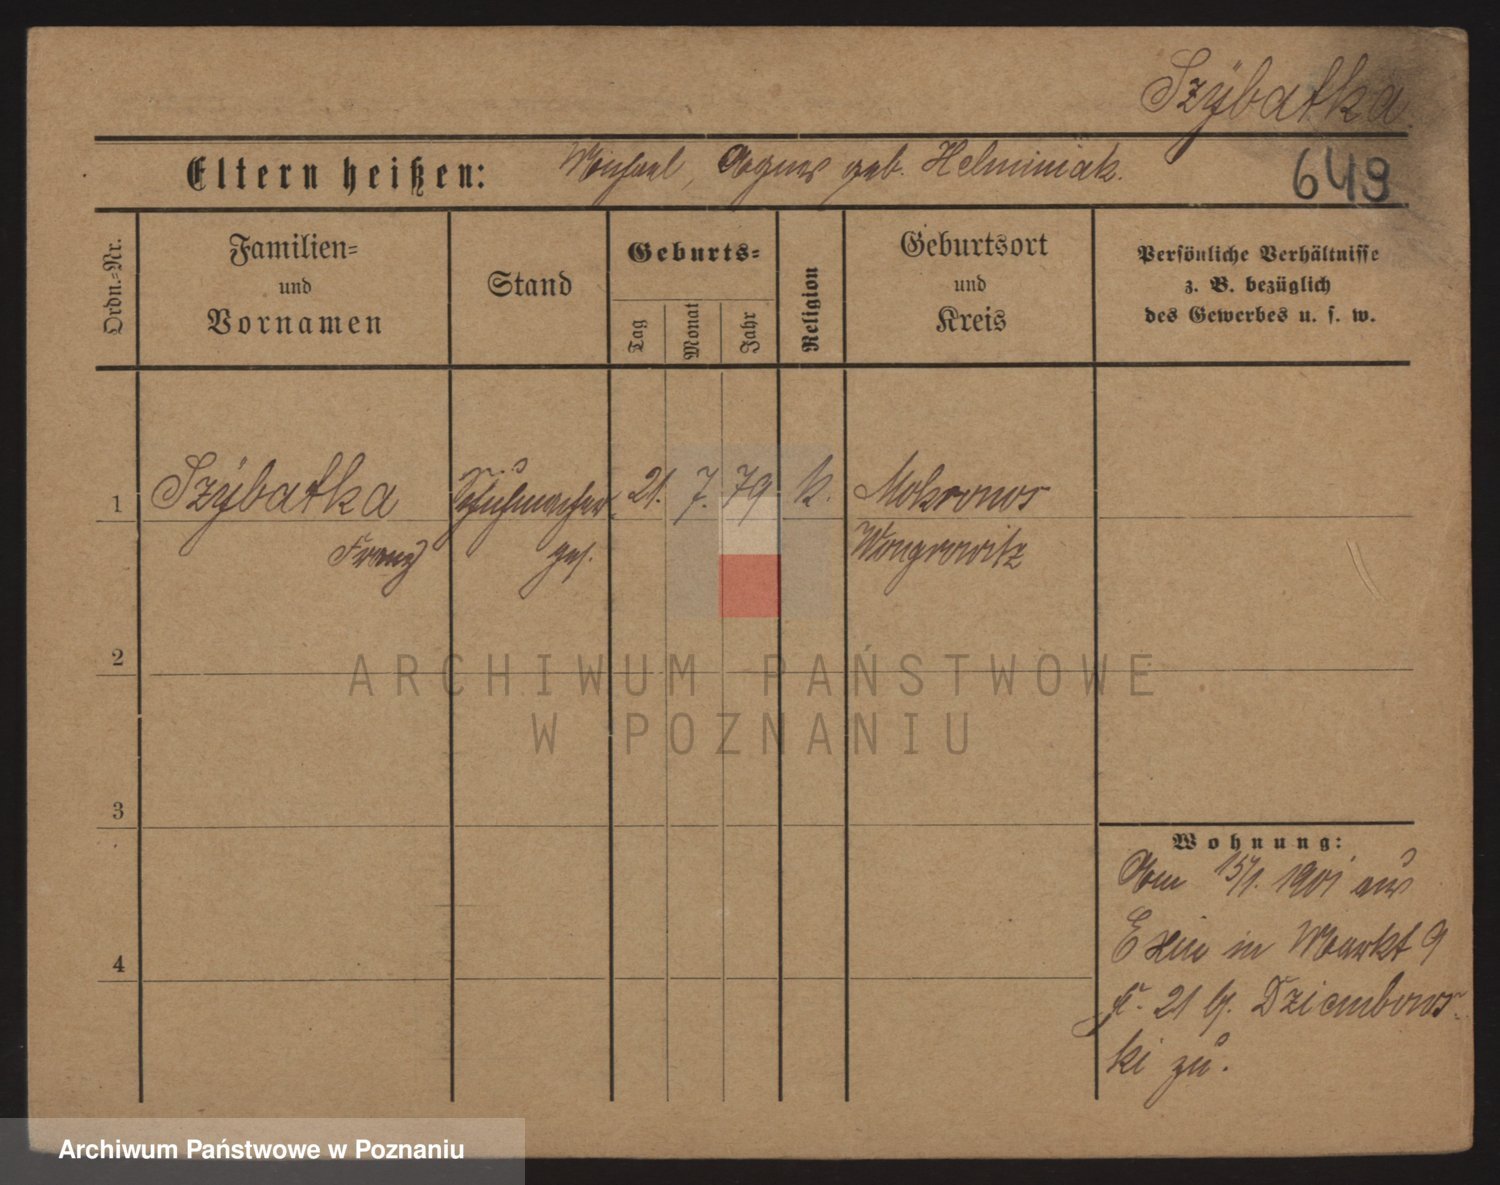 Szÿbatka
Eltern heißen: Michael, Agnes geb. Helminiak.
649
Ordn.-Nr.
Familien=
und
Vornamen
Stand
Geburts=
Tag
Monat
Jahr
Religion
Geburtsort
und
Kreis
Persönliche Verhältnisse
z. B. bezüglich
des Gewerbes u. s. w.
1 Szÿbatka Schuhmacher 21. 7. 79 k. Mokronos
Franz ges. Wongrowitz
2
ARCHIWUM PAŃSTWOWE
W POZNANIU
3
4
Wohnung:
Am 15/1. 1901 aus
Exin in Markt 9
21 Dziembows-
ki zu.
Archiwum Państwowe w Poznaniu